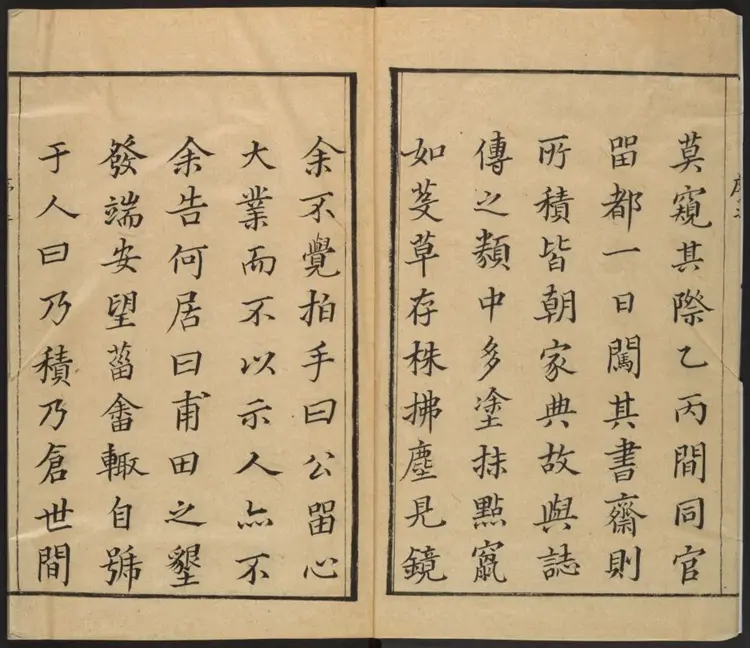 莫窺其際乙丙間同官
畱都一日闖其書齋則
所積皆朝家典故與誌
傳之類中多塗抹點竄
如芟草存株拂塵見鏡
余不覺拍手曰公畱心
大業而不以示人亦不
余告何居曰甫田之墾
發端安望菑畬輙自號
于人曰乃積乃倉世間